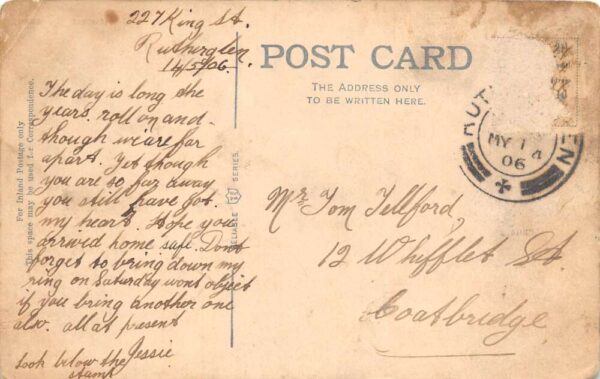 227 King St.
Rutherglen.
14/5/06.
The day is long the
years. roll on and -
though we are far
apart. Yet though
you are so far away
you still have got.
my heart. Hope you
arrived home safe Dont
forget to bring down my
ring on Saturday wont object
if you bring another one
also. all at present
Jessie
Look below the
stamp
For Inland Postage only
This space may be used for Correspondence.
RELIABLE SERIES.
POST CARD
THE ADDRESS ONLY
TO BE WRITTEN HERE.
MY 14
06
Mr Tom Tellford,
12 Whifflet St
Coatbridge